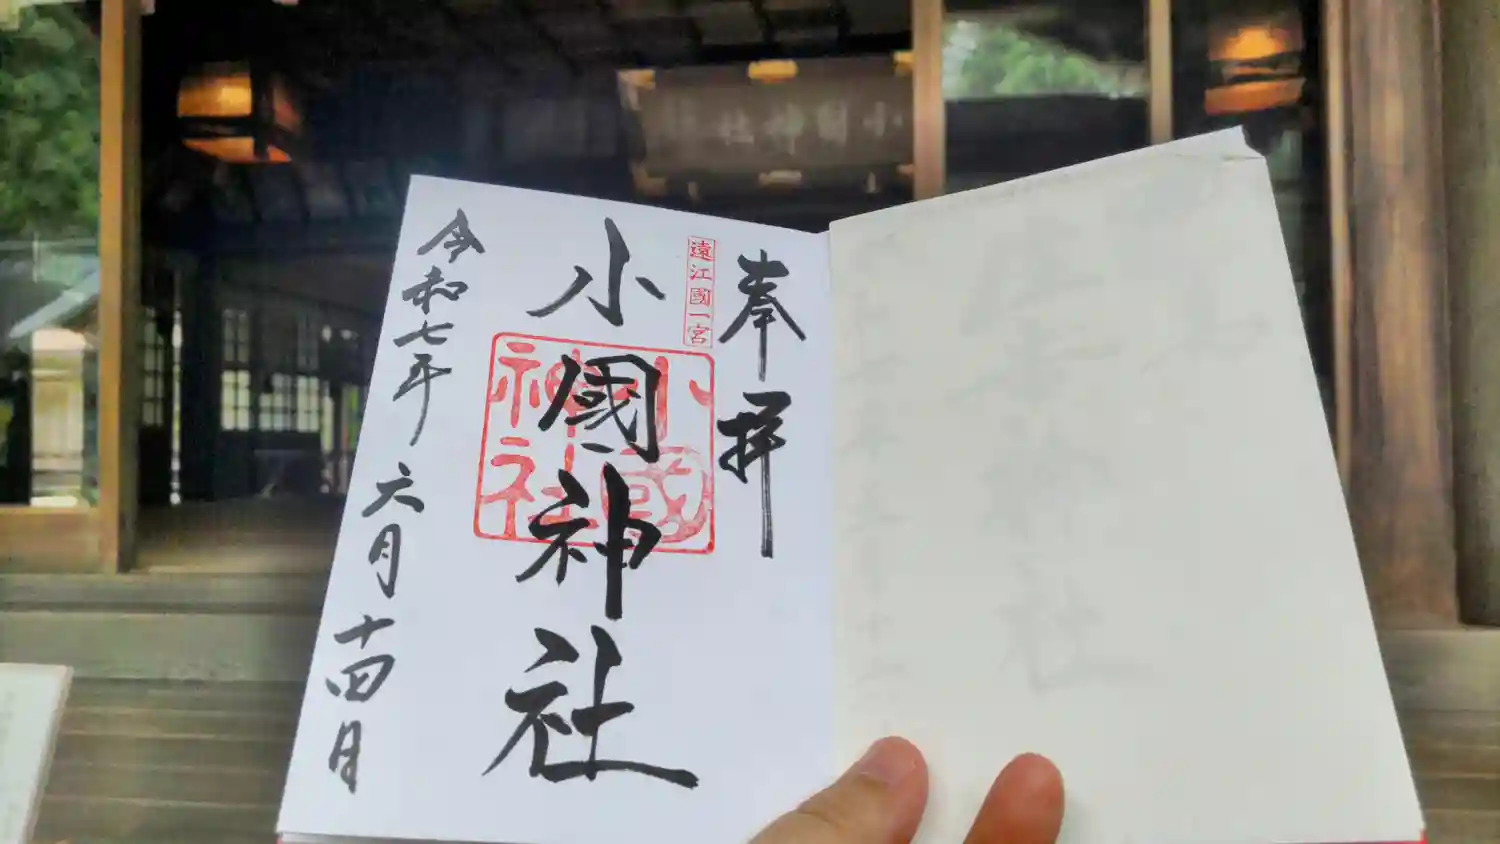 小國神社
奉拝
遠江國一宮
小國神社
小國神社
令和七年六月十四日